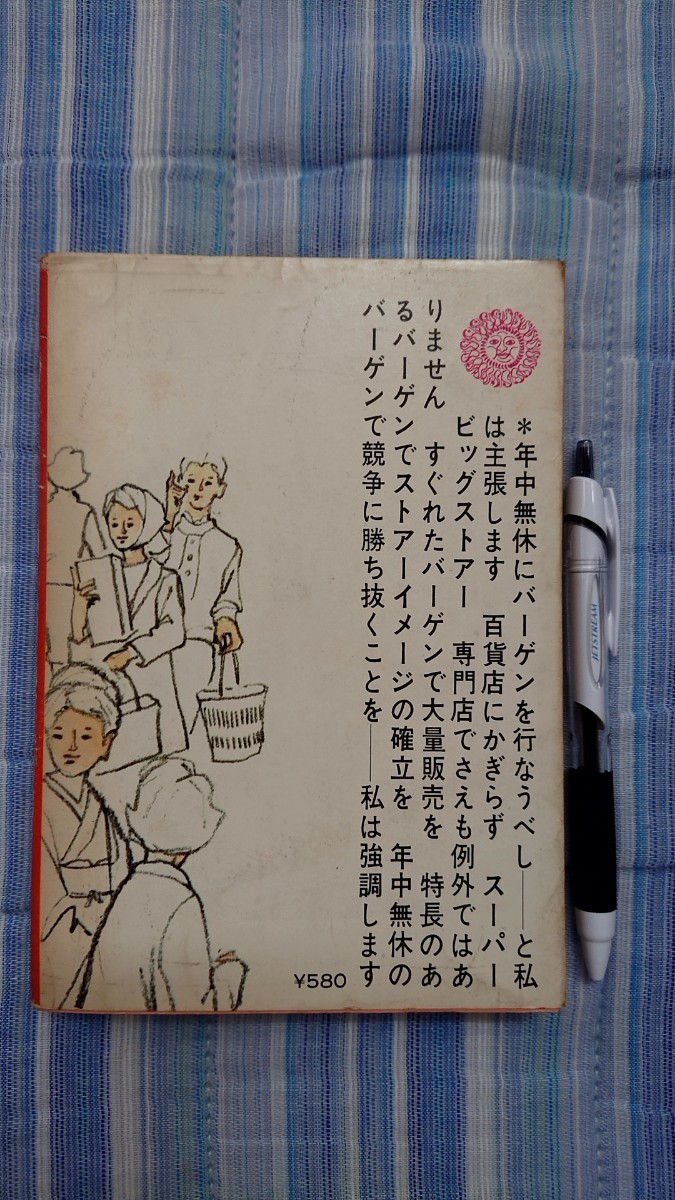 ＊年中無休にバーゲンを行なうべし――と私
は主張します　百貨店にかぎらず　スーパー
ビッグストアー　専門店でさえも例外ではあ
りません　すぐれたバーゲンで大量販売を　特長のあ
るバーゲンでストアーイメージの確立を　年中無休の
バーゲンで競争に勝ち抜くことを――私は強調します
¥580
JETSTREAM